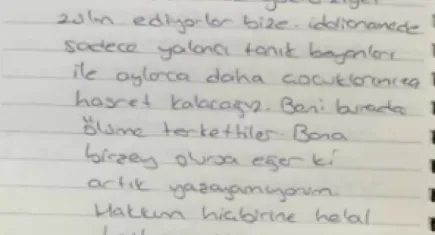 zulm ediyorlar bize. iddianamede
sadece yalancı tanık beyanları
ile aylarca daha çocuklarımıza
hasret kalacağız. Beni burada
ölüme terkettiler. Bana
birşey olursa eğer ki
artık yazayamıyorum.
Hakkım hiçbirine helal